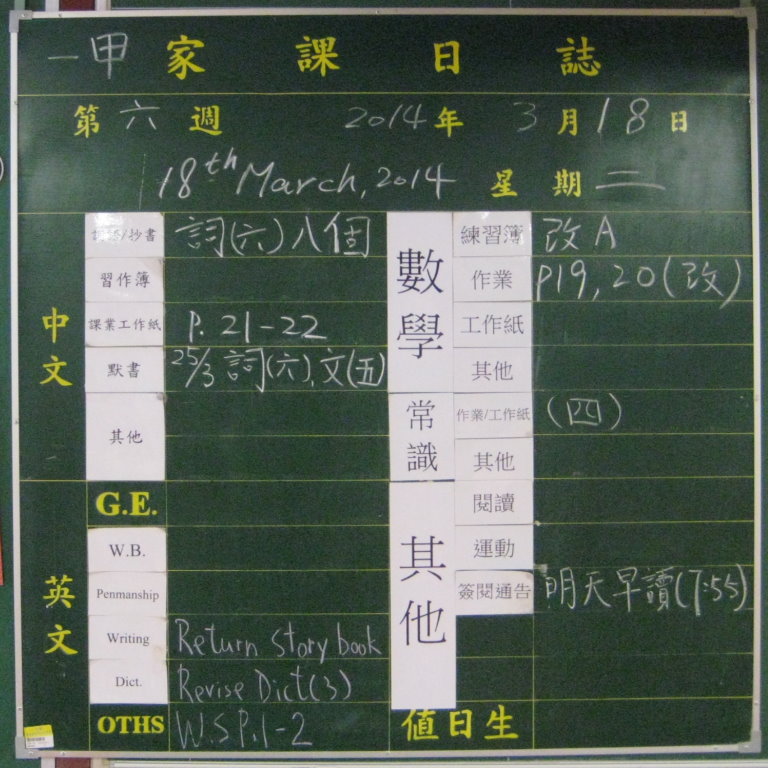 一甲 家課日誌
第六週 2014年3月18日
18th March, 2014 星期二
中文
詞語/抄書 詞(六)八個
習作簿
課業工作紙 P. 21-22
默書 25/3 詞(六),文(五)
其他
英文
G.E.
W.B.
Penmanship
Writing Return story book
Dict. Revise Dict(3)
OTHS W.S P.1-2
數學
練習簿 改A
作業 P19,20(改)
工作紙
其他
常識
作業/工作紙 (四)
其他
其他
閱讀
運動
簽閱通告 明天早讀(7:55)
值日生